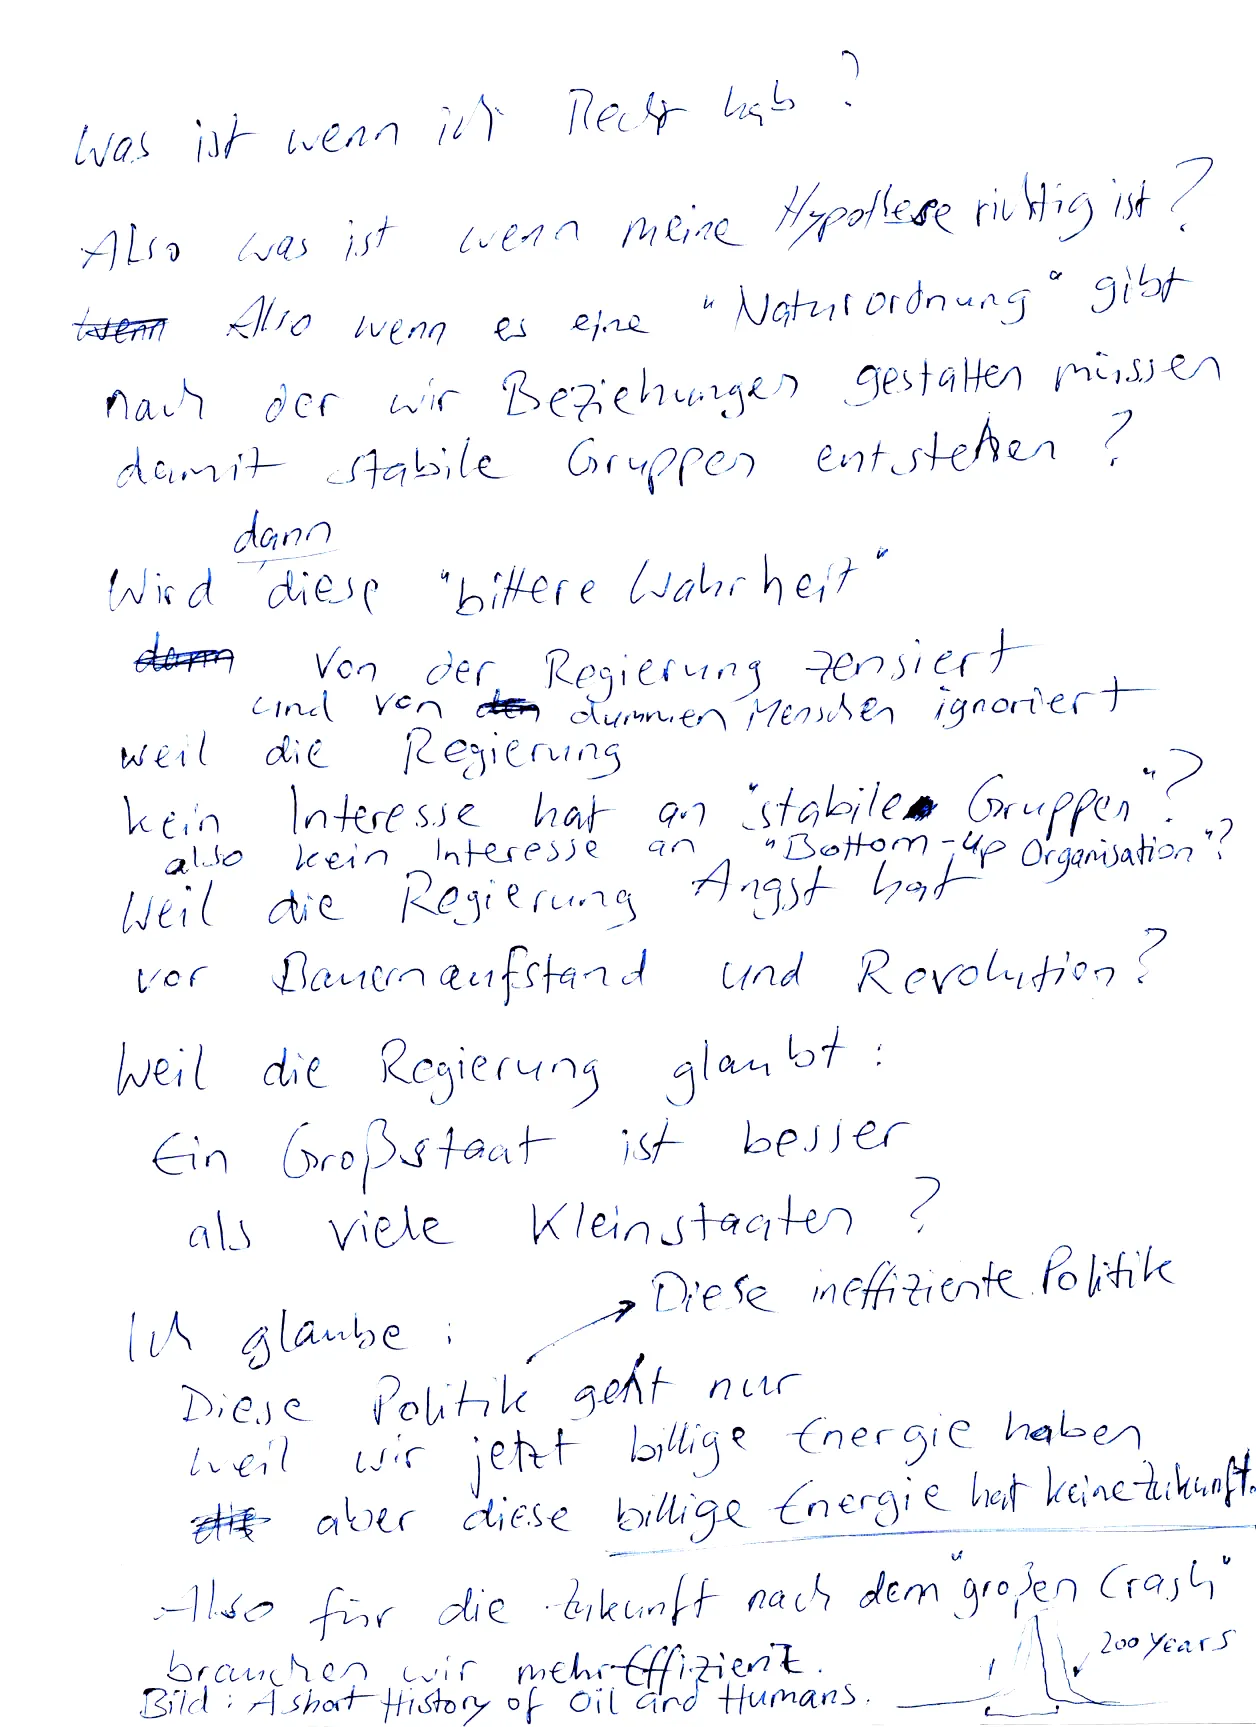 Was ist wenn ich Recht hab?
Also was ist wenn meine Hypothese richtig ist?
wenn Also wenn es eine "Naturordnung" gibt
nach der wir Beziehungen gestalten müssen
damit stabile Gruppen entstehen?
dann
Wird diese "bittere Wahrheit"
dann von der Regierung zensiert
und von den dummen Menschen ignoriert
weil die Regierung
kein Interesse hat an "stabile Gruppen"?
also kein Interesse an "Bottom-Up Organisation"?
Weil die Regierung Angst hat
vor Bauernaufstand und Revolution?
Weil die Regierung glaubt:
Ein Großstaat ist besser
als viele Kleinstaaten?
Diese ineffiziente Politik
Ich glaube:
Diese Politik geht nur
weil wir jetzt billige Energie haben
aber diese billige Energie hat keine Zukunft.
Also für die Zukunft nach dem "großen Crash"
brauchen wir mehr Effizienz.
200 years
Bild: A short History of Oil and Humans.